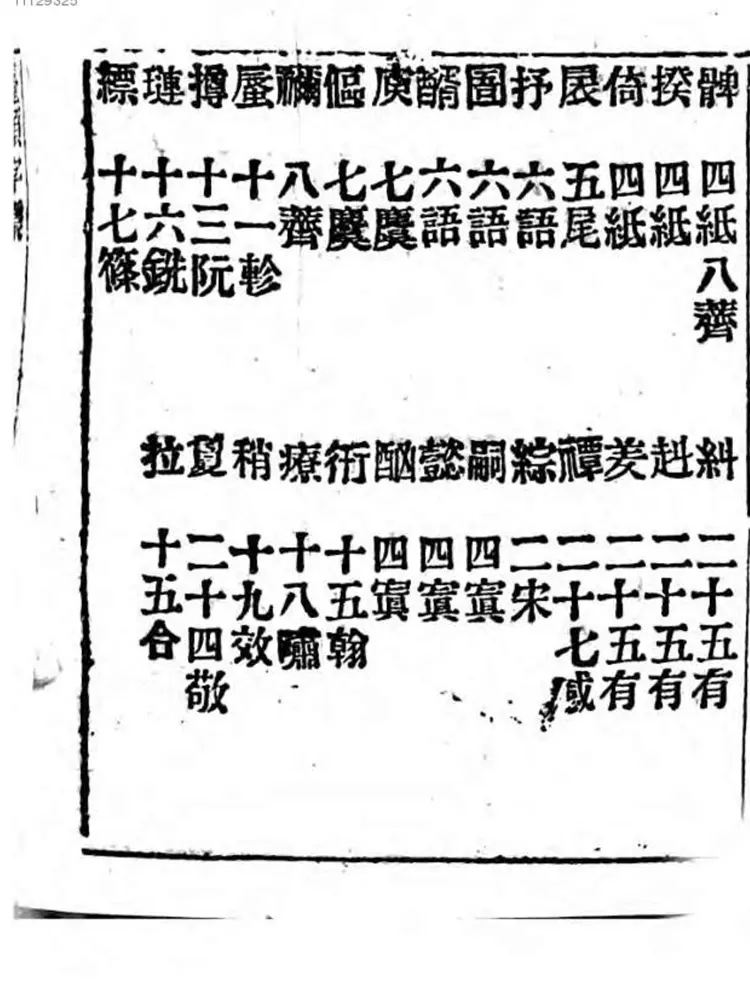 11129325
髀 四紙八薺 糾 二十五有
揆 四紙 赳 二十五有
倚 四紙 羑 二十五有
扆 五尾 禫 二十七感
抒 六語 綜 二宋
圄 六語 嗣 四寘
醑 六語 懿 四寘
庾 七麌 四寘
傴 七麌 衎 十五翰
禰 八薺 療 十八嘯
蜃 十一軫 稍 十九效
撙 十三阮 夐 二十四敬
璉 十六銑 拉 十五合
縹 十七篠